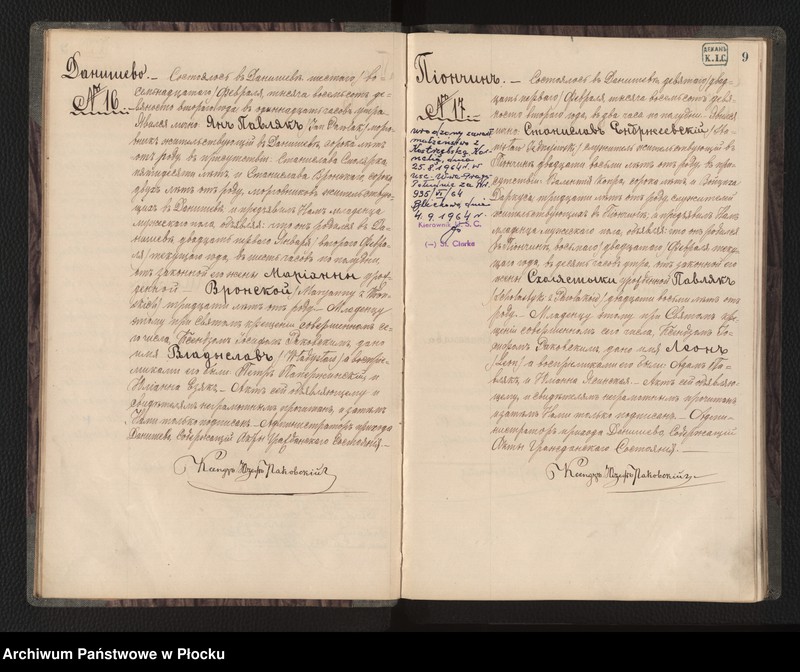 Данишево. — Состоялось въ Данишевѣ шестаго /во-
№ 16.
семьнадцатаго/ Февраля тысяча восемьсотъ де-
вяносто втораго года въ одиннадцать часовъ утра.
Явился лично Янъ Павлякъ /Jan Pawlak/
жительствующій въ Данишевѣ, сорока лѣтъ
отъ роду, въ присутствіи Станислава
пятидесяти лѣтъ и Станислава Вронскаго, сорока
двухъ лѣтъ отъ роду, жительствую-
щихъ въ Данишевѣ и предъявилъ Намъ младенца
мужескаго пола, объявляя что онъ родился въ Да-
нишевѣ двадцать перваго Января /втораго Февра-
ля/ текущаго года, въ шесть часовъ по полудни,
отъ законной его жены Маріанны урож-
денной — Вронской /Maryanny z Wron-
skich/ тридцати лѣтъ отъ роду. — Младенцу
этому при святомъ крещеніи совершенномъ се-
го числа, Ксендзомъ Іосифомъ Раковскимъ, дано
имя Владиславъ /Władysław/ а воспріем-
никами его были Петръ и
Юліанна — Актъ сей объявляющему и
свидѣтелямъ неграмотнымъ прочитанъ, а затѣмъ
Нами только подписанъ. — Администраторъ прихода
Данишево Содержащій Акты Гражданскаго Состоянія. —
Ксендзъ Юзефъ Раковскій
ДЕКАНЪ
К.I.С.
9
Піончинъ. — Состоялось въ Данишевѣ девятаго /двад-
№ 17.
цать перваго/ Февраля тысяча восемьсотъ девя-
носто втораго года, въ два часа по полудни. Явился
лично Станиславъ Ендржеевскій /
служитель жительствующій въ
Піончинѣ двадцати восьми лѣтъ отъ роду, въ при-
сутствіи Валентія сорока лѣтъ и Войцеха
тридцати лѣтъ отъ роду, служителей
жительствующихъ въ Піончинѣ, и предъявилъ Намъ
младенца мужескаго пола, объявляя что онъ родился
въ Піончинѣ, восьмаго /двадцатаго/ Февраля теку-
щаго года, въ десять часовъ утра, отъ законной его
жены Схолястыки урожденной Павлякъ
/Scholastyki z Pawlaków/ двадцати восьми лѣтъ отъ
роду. — Младенцу этому при Святомъ кре-
щеніи совершенномъ сего числа, Ксендзомъ Іо-
сифомъ Раковскимъ дано имя Леонъ
/Leon/ а воспріемниками его были Адамъ Па-
влякъ и Юліанна — Актъ сей объявляю-
щему, и свидѣтелямъ неграмотнымъ прочитанъ
а затѣмъ Нами только подписанъ. — Адми-
нистраторъ прихода Данишево Содержащій
Акты Гражданскаго Состоянія. —
Ксендзъ Юзефъ Раковскій
małżeństwo z
dnia
25.8.1964 r. w
935/VI/64
dnia
4.9.1964 r.
Kierownik U.S.C.
(—) St. Ciarka
Archiwum Państwowe w Płocku